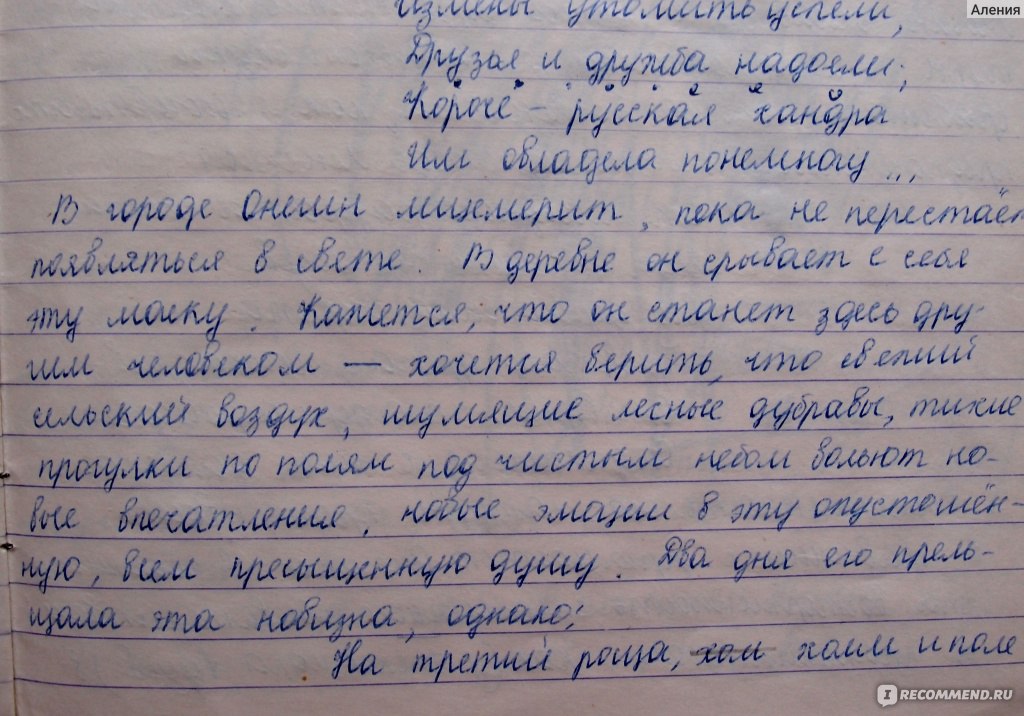 Аления
Измены утомить успели,
Друзья и дружба надоели;
Короче – русская хандра
Им овладела понемногу...
В городе Онегин лицемерит, пока не перестаёт
появляться в свете. В деревне он срывает с себя
эту маску. Кажется, что он станет здесь дру-
гим человеком — хочется верить, что свежий
сельский воздух, шумящие лесные дубравы, тихие
прогулки по полям под чистым небом вольют но-
вые впечатления, новые эмоции в эту опустошён-
ную, всем пресыщенную душу. Два дня его прель-
щала эта новизна, однако:
На третий роща, холм и поле
IRECOMMEND.RU